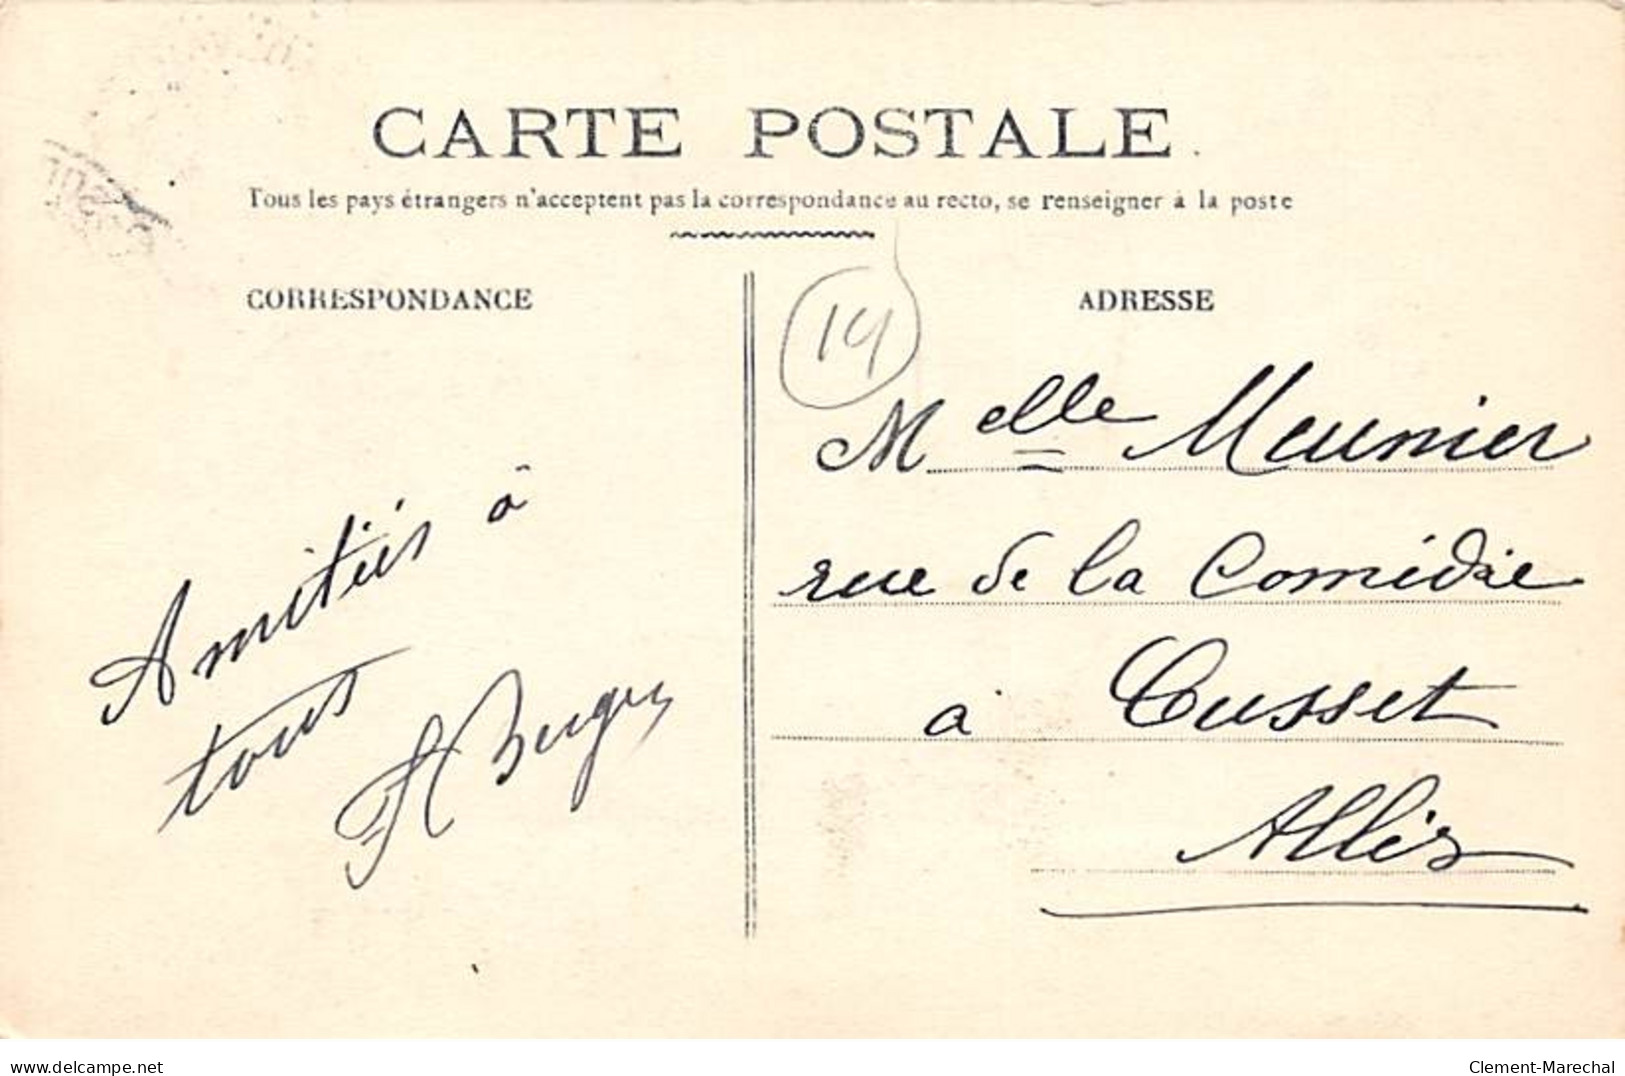 CARTE POSTALE
Tous les pays étrangers n'acceptent pas la correspondance au recto, se renseigner à la poste
CORRESPONDANCE
ADRESSE
14
Melle Meunier
rue de la Comédie
à Cusset
Allier
Amitiés à
tous
delcampe.net
Clement-Marechal